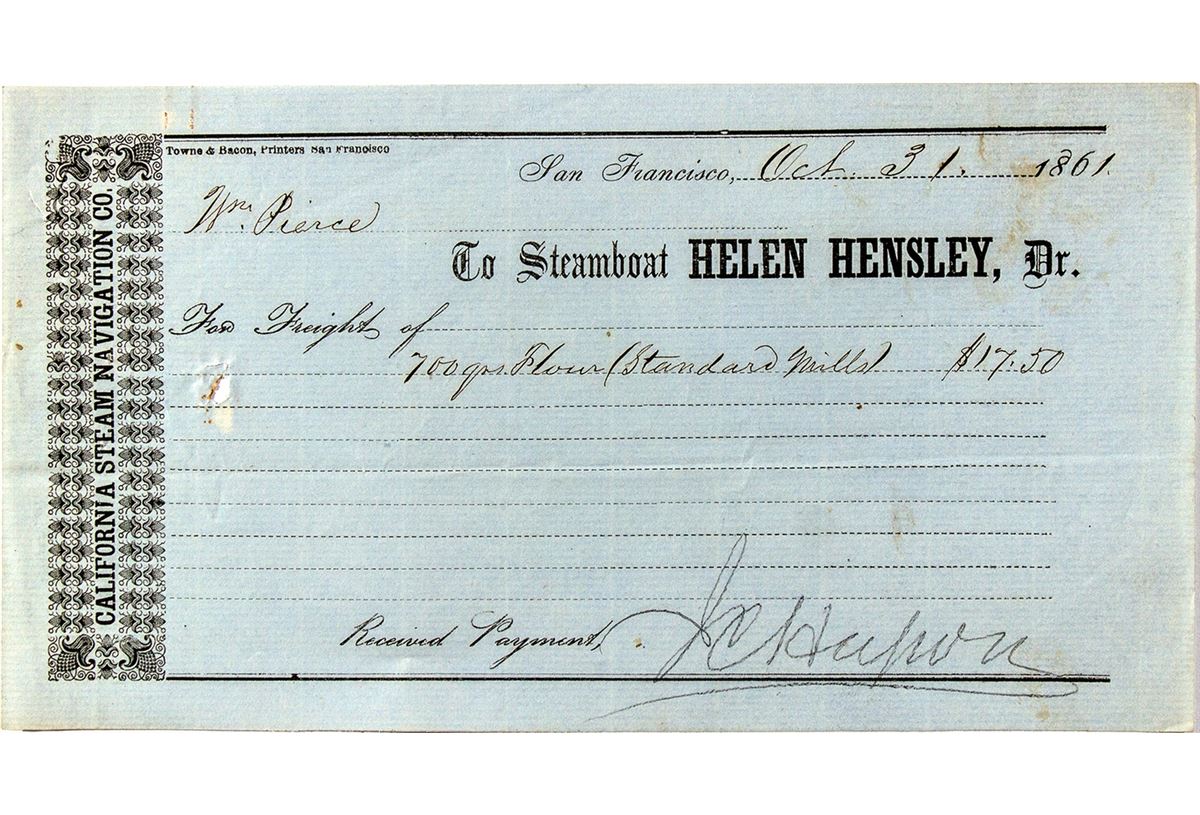 CALIFORNIA STEAM NAVIGATION CO.
Towne & Bacon, Printers San Francisco
San Francisco, Oct. 31. 1861.
Wm. Pierce
To Steamboat HELEN HENSLEY, Dr.
For Freight of
700 qrs. Flour (Standard Mills) $17.50
Received Payment,